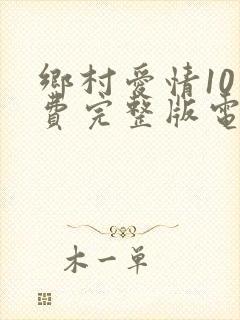 鄉村愛情10
費完整版電
木一单